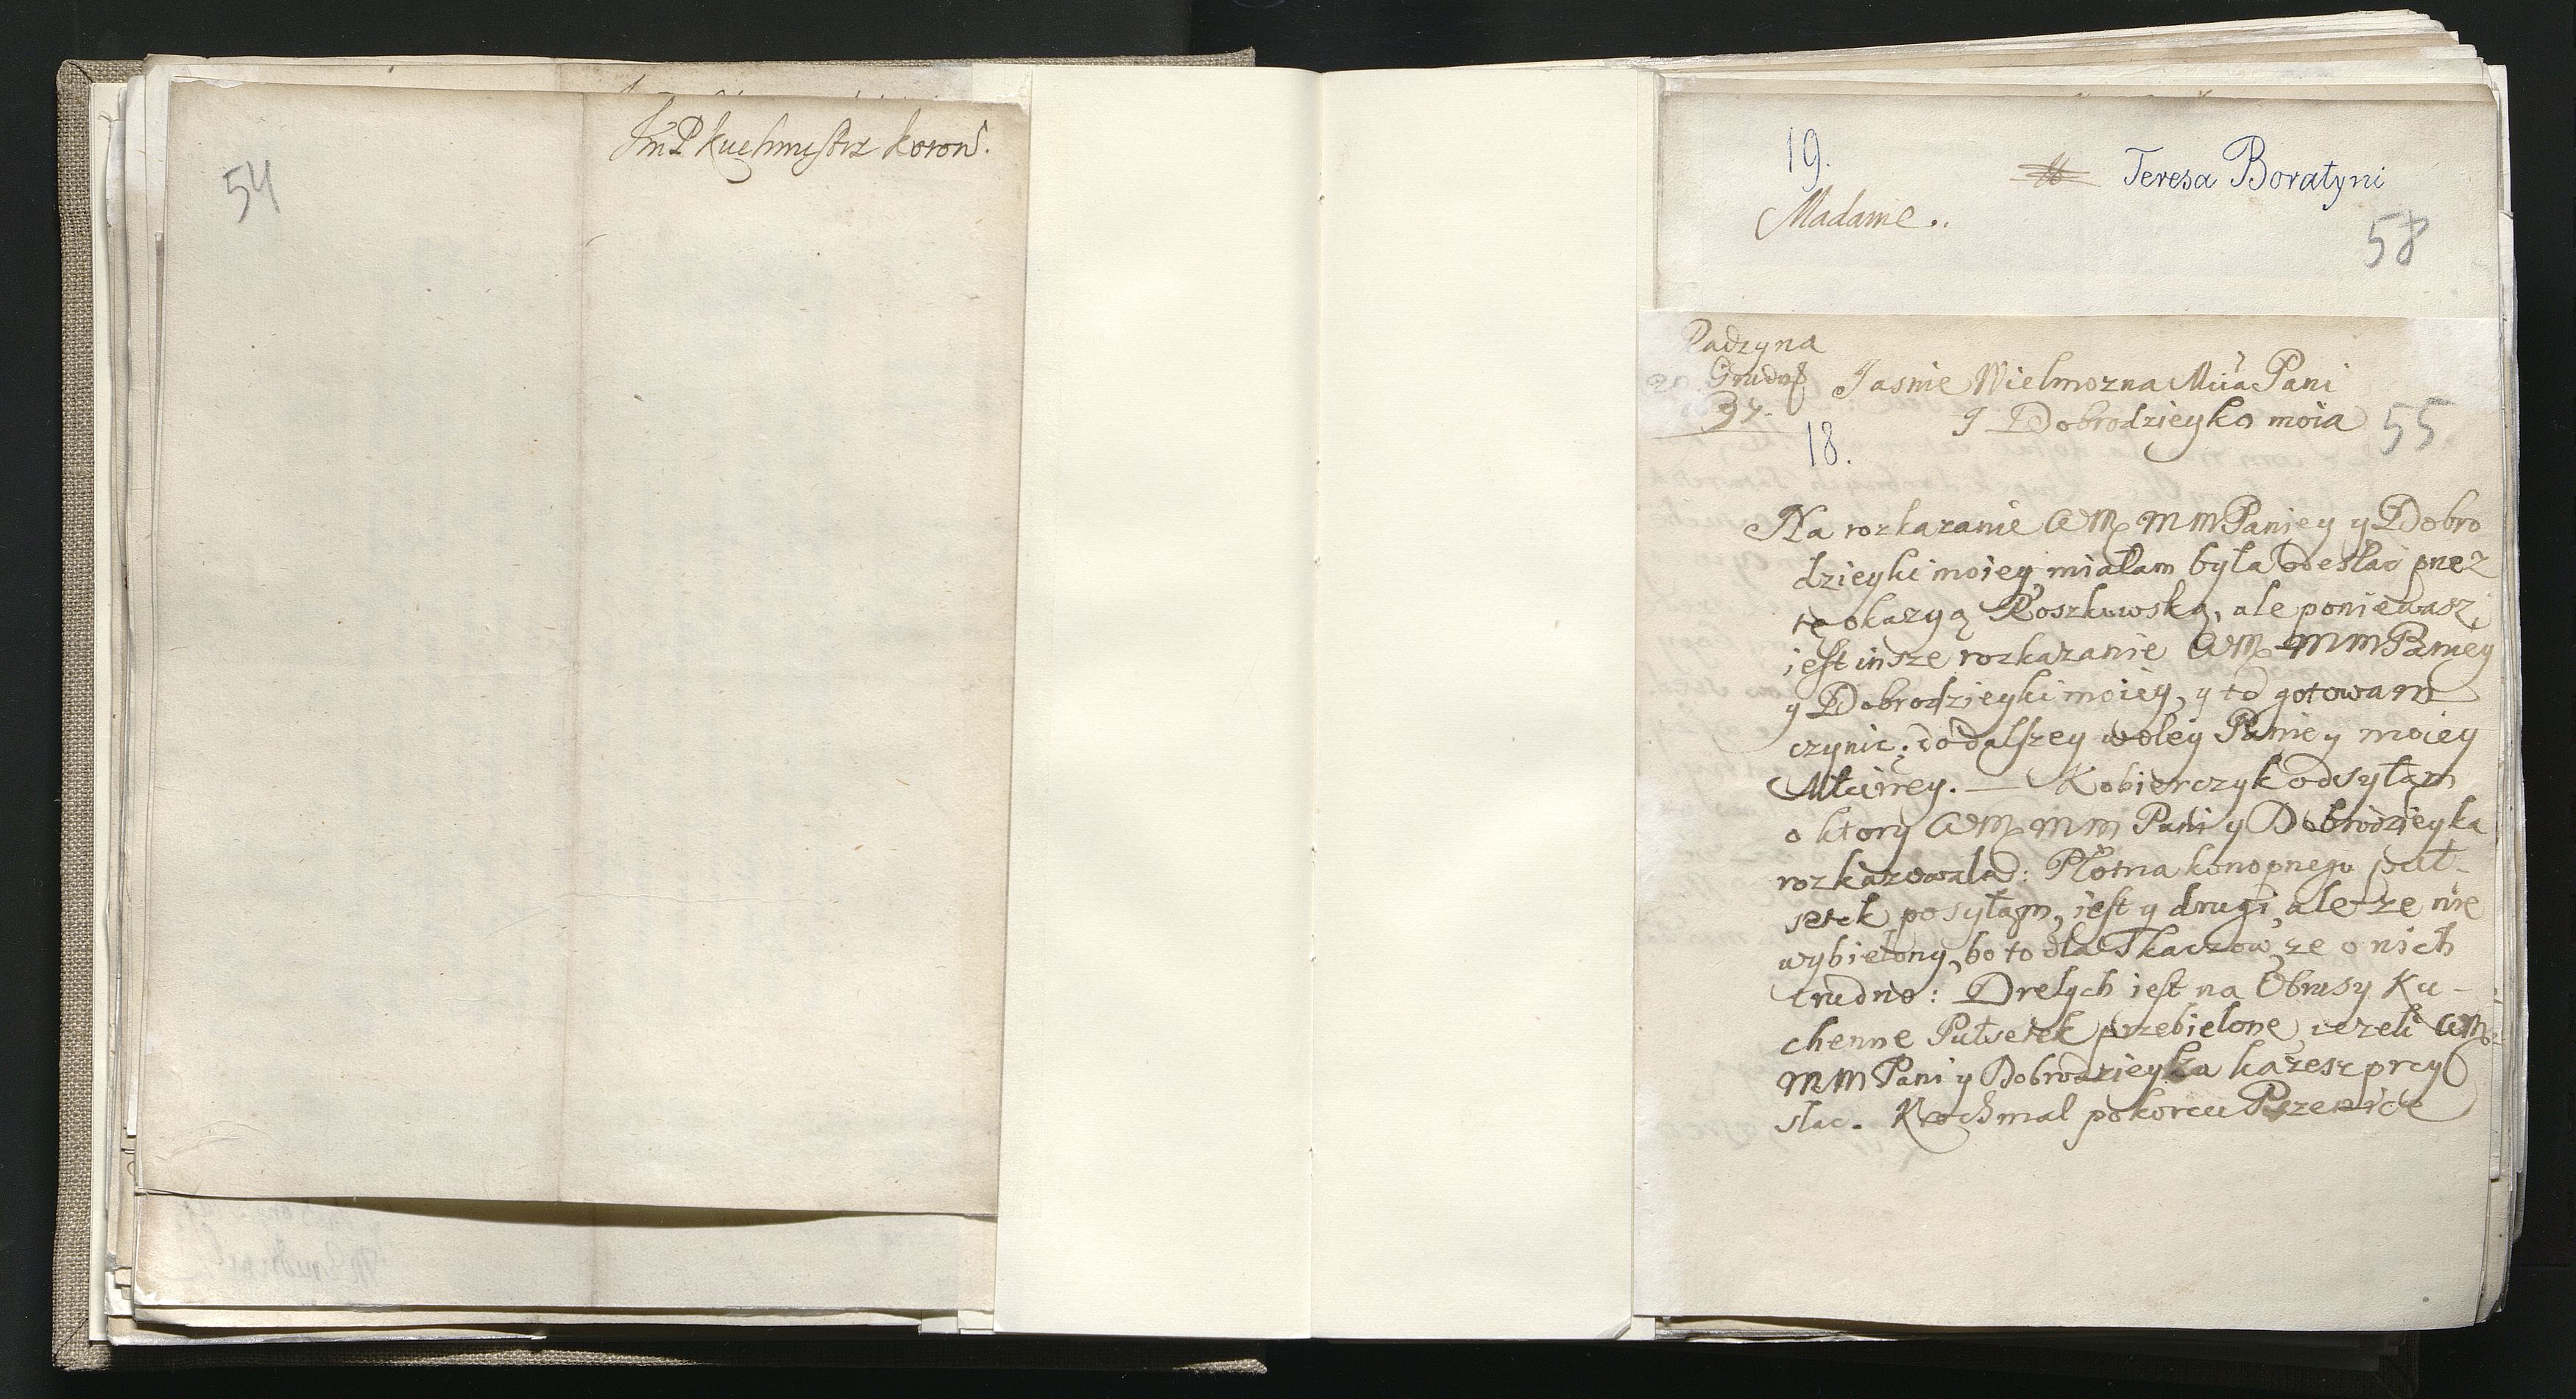 54
JmP kuchmistrz koron.
19.
Teresa Boratyni
Madame.
58
Radzyna
Grudn
97.
Jasnie Wielmozna Mćia Pani
I Dobrodzieyko moia
55
18.
Na rozkazanie WM MMPaniey y Dobro
dzieyki moiey miałam była odesłać przez
tę okazyą Roszkowską, ale poniewasz
jest insze rozkazanie WM MMPaniey
y Dobrodzieyki moiey, y to gotowam
czynic: do dalszey woley Paniey moiey
Młciwey. — Kobierczyk odsyłam
o ktory WM MM Pani y Dobrodzieyka
rozkazowala: Płotna konopnego puł-
setek posyłam, jest y drugi, ale ze nie
wybielony, bo to dla Tkaczow, ze o nich
trudno: Drelych jest na Obrusy Ku-
chenne Pułsetek przebielone iezeli WM
MM Pani y Dobrodzieyka każesz przy
słac. Krochmal po korcu Pszenice